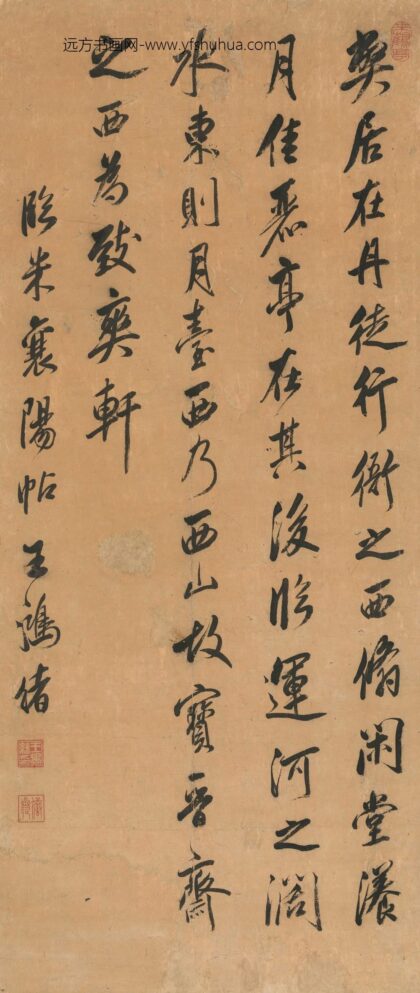 远方书画网-www.yfshuhua.com
弊居在丹徒行衙之西翛閑堂漾
月佳麗亭在其後臨運河之闊
水東則月臺西乃西山故寶晉齋
之西為致爽軒
臨米襄陽帖王鴻緒